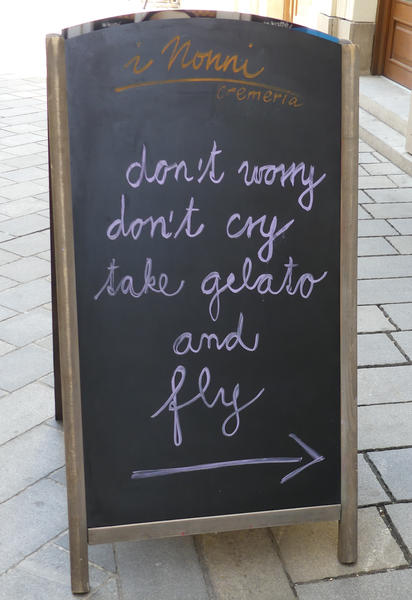 i Nonni
cremeria
don't worry
don't cry
take gelato
and
fly